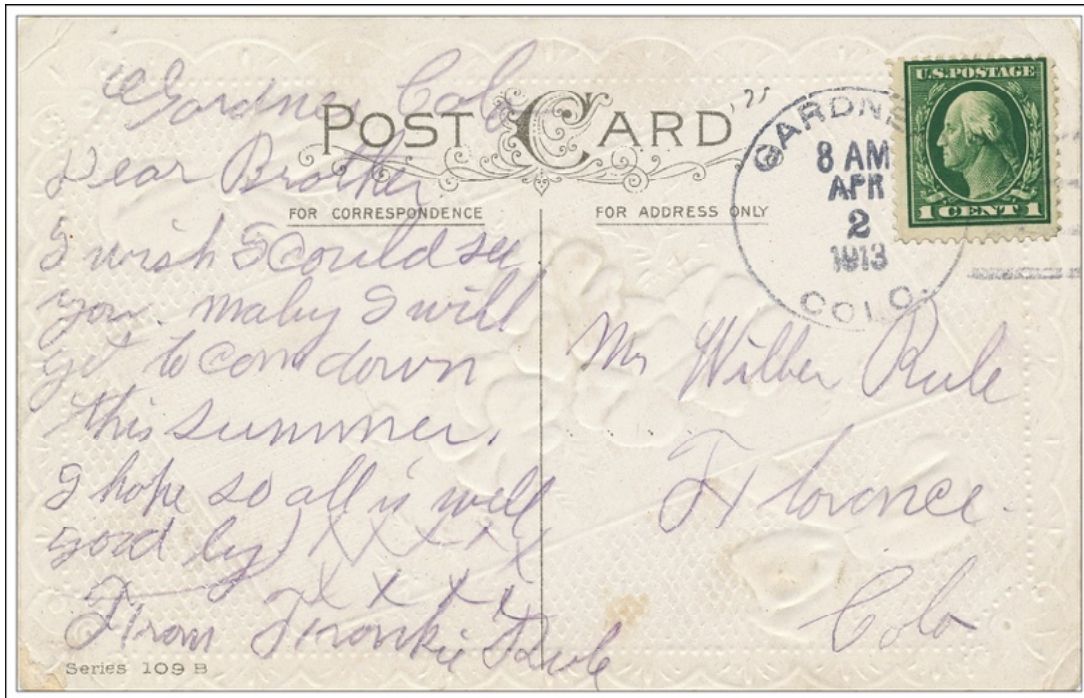 Gardner Colo
POST CARD
Dear Brother
FOR CORRESPONDENCE
I wish I could see
you. maby I will
get to come down
this summer.
I hope so all is well
good by X X X X X
X X X X
From Frankie Rule
Series 109 B
FOR ADDRESS ONLY
GARDNE
8 AM
APR
2
1913
COLO.
U.S. POSTAGE
1 CENT 1
Mr Wilber Rule
Florence.
Colo